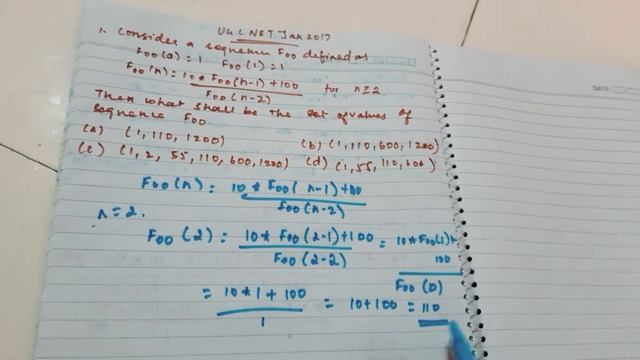 UGC NET Jan 2017
1. Consider a sequence Foo defined as
Foo(0) = 1 Foo(1) = 1
Foo(n) = 10*Foo(n-1)+100 for n≥2
Foo(n-2)
Then what shall be the set of values of
sequence Foo
(a) (1, 110, 1200) (b) (1, 110, 600, 1200)
(c) (1, 2, 55, 110, 600, 1200) (d) (1, 55, 110, 600)
Foo(n) = 10 * Foo(n-1)+100
Foo(n-2)
n=2.
Foo(2) = 10* Foo(2-1)+100 = 10*Foo(1)+
Foo(2-2) 100
Foo(0)
= 10*1+100 = 10+100 = 110
1
DATE: